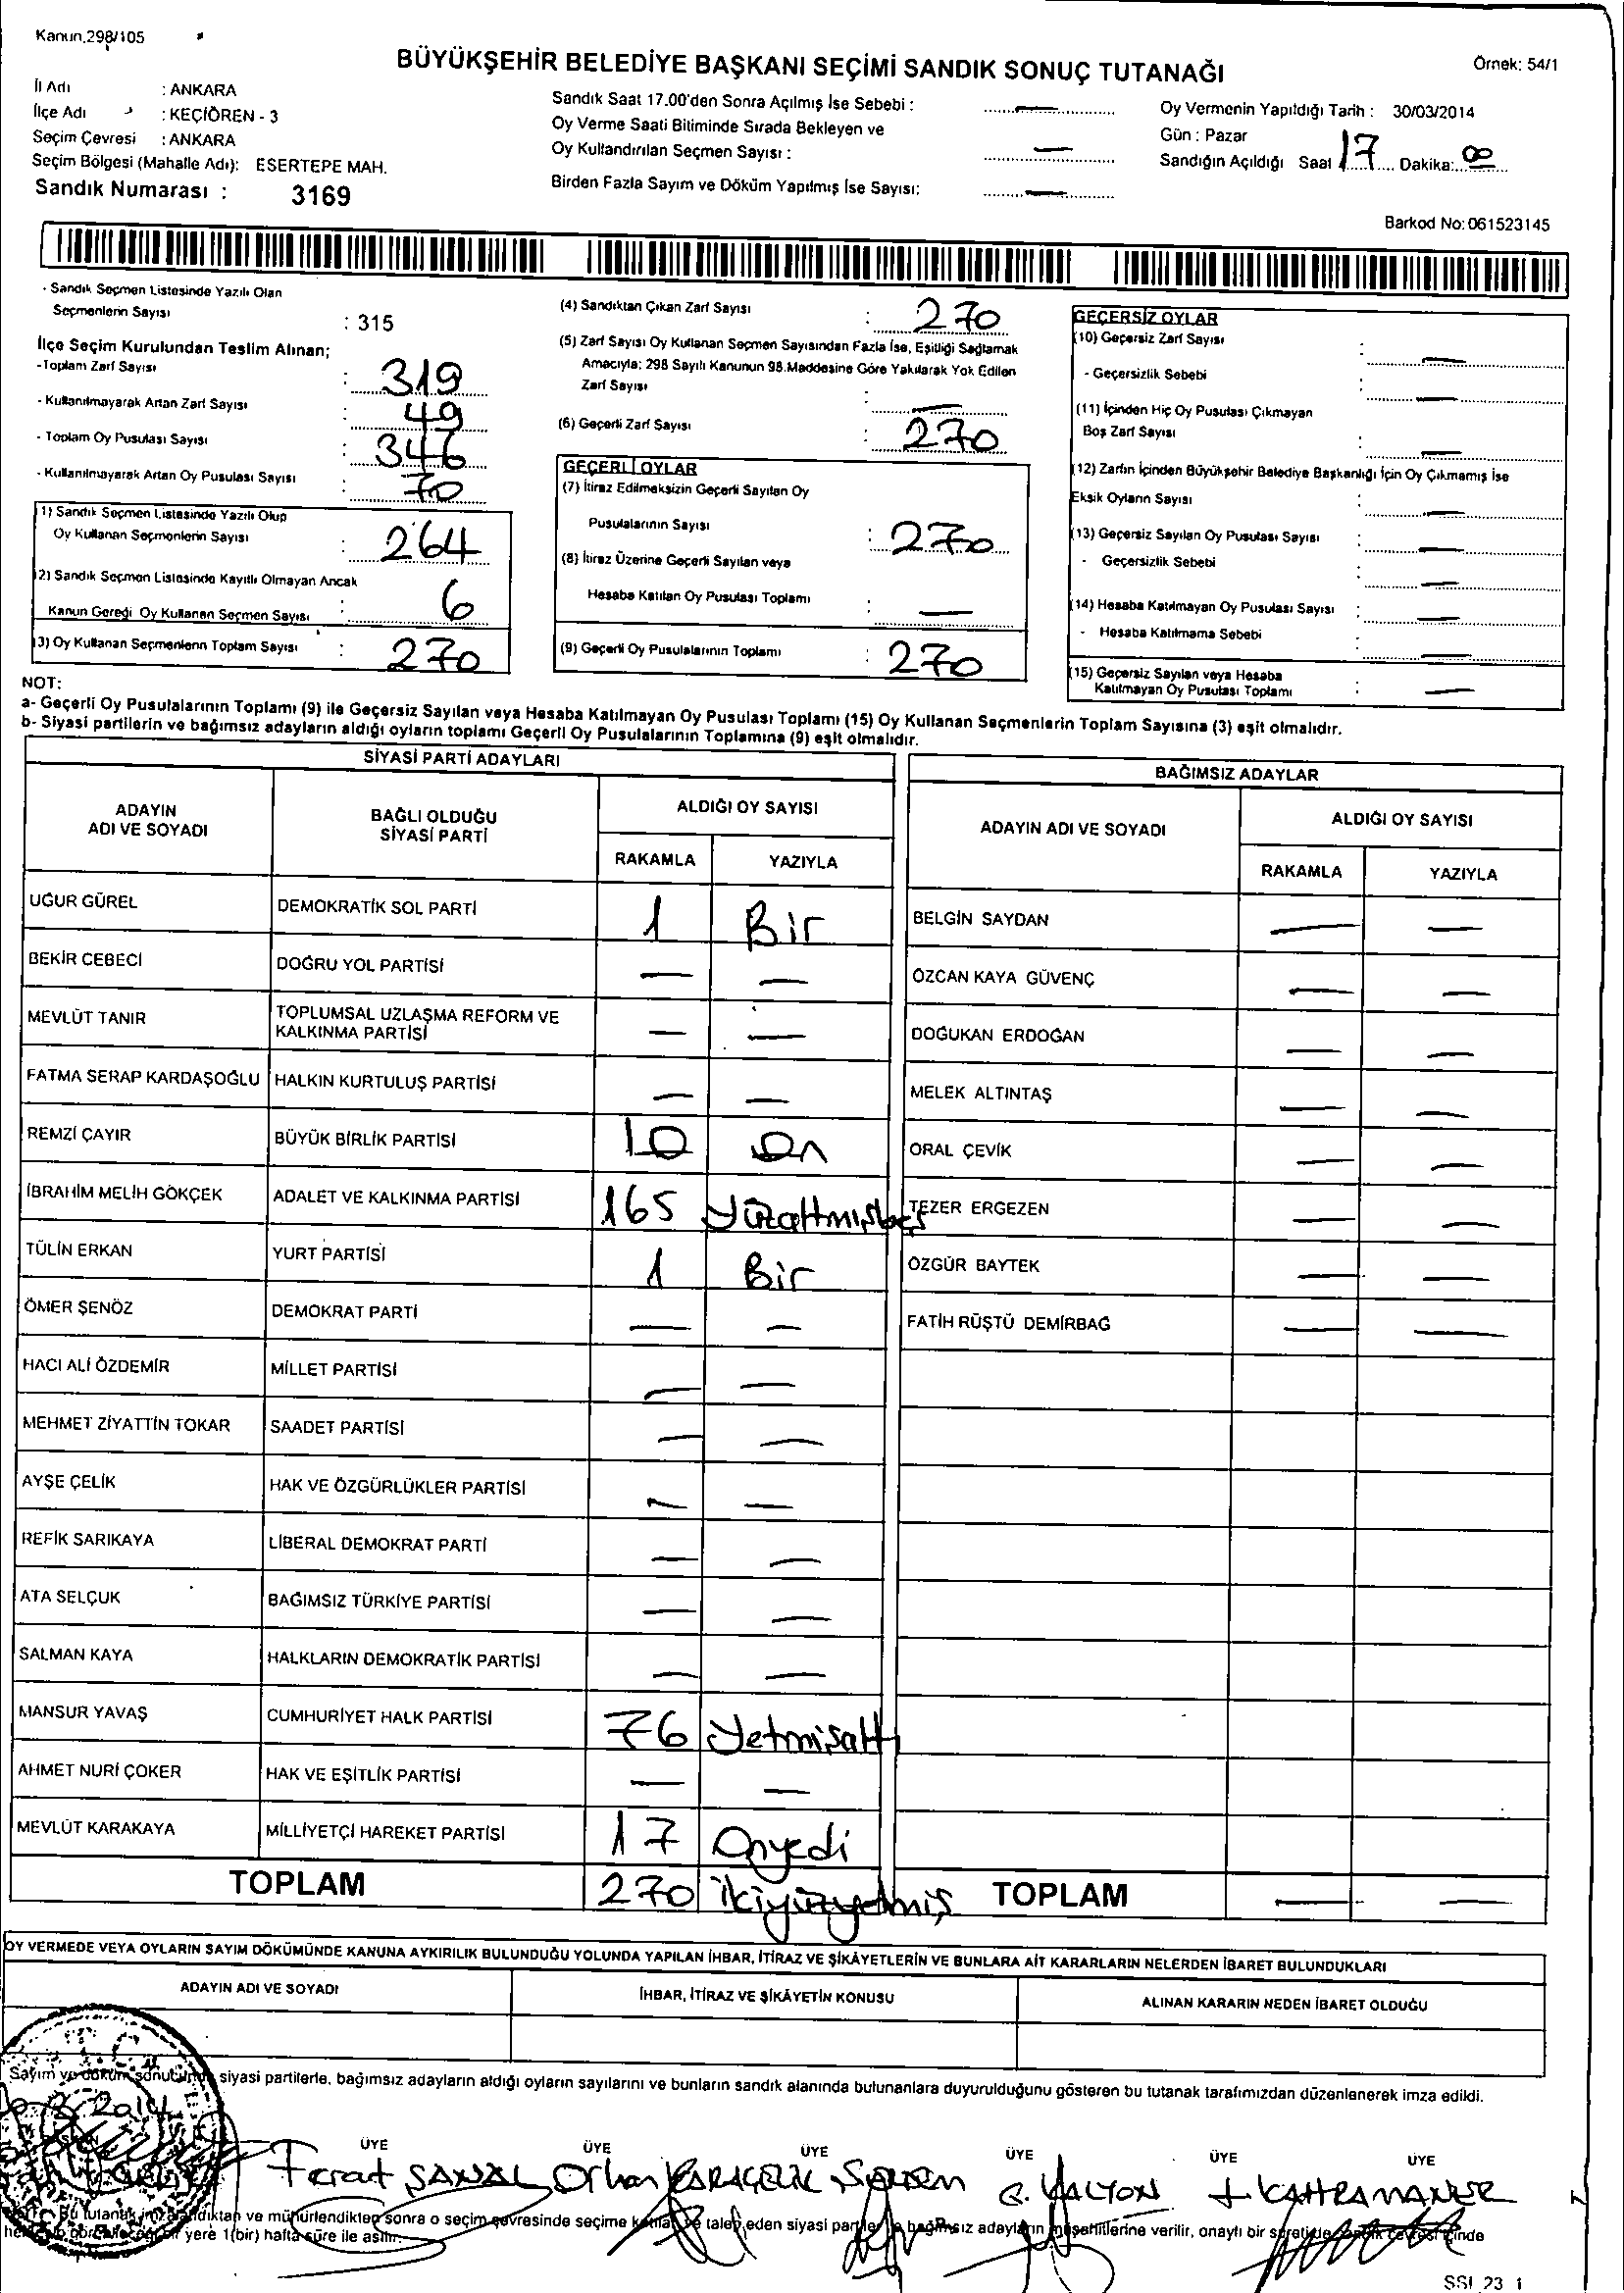 Kanun.298/105
BÜYÜKŞEHİR BELEDİYE BAŞKANI SEÇİMİ SANDIK SONUÇ TUTANAĞI
Örnek: 54/1
İl Adı : ANKARA
İlçe Adı : KEÇİÖREN - 3
Seçim Çevresi : ANKARA
Seçim Bölgesi (Mahalle Adı): ESERTEPE MAH.
Sandık Numarası : 3169
Sandık Saat 17.00'den Sonra Açılmış İse Sebebi : —
Oy Verme Saati Bitiminde Sırada Bekleyen ve
Oy Kullandırılan Seçmen Sayısı : —
Birden Fazla Sayım ve Döküm Yapılmış İse Sayısı: —
Oy Vermenin Yapıldığı Tarih : 30/03/2014
Gün : Pazar
Sandığın Açıldığı Saat 17 Dakika: 00
Barkod No: 061523145
- Sandık Seçmen Listesinde Yazılı Olan
Seçmenlerin Sayısı : 315
İlçe Seçim Kurulundan Teslim Alınan;
-Toplam Zarf Sayısı : 319
- Kullanılmayarak Artan Zarf Sayısı : 49
- Toplam Oy Pusulası Sayısı : 346
- Kullanılmayarak Artan Oy Pusulası Sayısı : 70
(1) Sandık Seçmen Listesinde Yazılı Olup
Oy Kullanan Seçmenlerin Sayısı : 264
(2) Sandık Seçmen Listesinde Kayıtlı Olmayan Ancak
Kanun Gereği Oy Kullanan Seçmen Sayısı : 6
(3) Oy Kullanan Seçmenlerin Toplam Sayısı : 270
(4) Sandıktan Çıkan Zarf Sayısı : 270
(5) Zarf Sayısı Oy Kullanan Seçmen Sayısından Fazla İse, Eşitliği Sağlamak
Amacıyla; 298 Sayılı Kanunun 98.Maddesine Göre Yakılarak Yok Edilen
Zarf Sayısı : —
(6) Geçerli Zarf Sayısı : 270
GEÇERLİ OYLAR
(7) İtiraz Edilmeksizin Geçerli Sayılan Oy
Pusulalarının Sayısı : 270
(8) İtiraz Üzerine Geçerli Sayılan veya
Hesaba Katılan Oy Pusulası Toplamı : —
(9) Geçerli Oy Pusulalarının Toplamı : 270
GEÇERSİZ OYLAR
(10) Geçersiz Zarf Sayısı : —
- Geçersizlik Sebebi : —
(11) İçinden Hiç Oy Pusulası Çıkmayan
Boş Zarf Sayısı : —
(12) Zarfın İçinden Büyükşehir Belediye Başkanlığı İçin Oy Çıkmamış İse
Eksik Oyların Sayısı : —
(13) Geçersiz Sayılan Oy Pusulası Sayısı : —
- Geçersizlik Sebebi : —
(14) Hesaba Katılmayan Oy Pusulası Sayısı : —
- Hesaba Katılmama Sebebi : —
(15) Geçersiz Sayılan veya Hesaba
Katılmayan Oy Pusulası Toplamı : —
NOT:
a- Geçerli Oy Pusulalarının Toplamı (9) ile Geçersiz Sayılan veya Hesaba Katılmayan Oy Pusulası Toplamı (15) Oy Kullanan Seçmenlerin Toplam Sayısına (3) eşit olmalıdır.
b- Siyasi partilerin ve bağımsız adayların aldığı oyların toplamı Geçerli Oy Pusulalarının Toplamına (9) eşit olmalıdır.
SİYASİ PARTİ ADAYLARI
ADAYIN ADI VE SOYADI
BAĞLI OLDUĞU SİYASİ PARTİ
ALDIĞI OY SAYISI
RAKAMLA YAZIYLA
UĞUR GÜREL DEMOKRATİK SOL PARTİ 1 Bir
BEKİR CEBECİ DOĞRU YOL PARTİSİ — —
MEVLÜT TANIR TOPLUMSAL UZLAŞMA REFORM VE KALKINMA PARTİSİ — —
FATMA SERAP KARDAŞOĞLU HALKIN KURTULUŞ PARTİSİ — —
REMZİ ÇAYIR BÜYÜK BİRLİK PARTİSİ 10 On
İBRAHİM MELİH GÖKÇEK ADALET VE KALKINMA PARTİSİ 165 Yüzaltmışbeş
TÜLİN ERKAN YURT PARTİSİ 1 Bir
ÖMER ŞENÖZ DEMOKRAT PARTİ — —
HACI ALİ ÖZDEMİR MİLLET PARTİSİ — —
MEHMET ZİYATTİN TOKAR SAADET PARTİSİ — —
AYŞE ÇELİK HAK VE ÖZGÜRLÜKLER PARTİSİ — —
REFİK SARIKAYA LİBERAL DEMOKRAT PARTİ — —
ATA SELÇUK BAĞIMSIZ TÜRKİYE PARTİSİ — —
SALMAN KAYA HALKLARIN DEMOKRATİK PARTİSİ — —
MANSUR YAVAŞ CUMHURİYET HALK PARTİSİ 76 Yetmişaltı
AHMET NURİ ÇOKER HAK VE EŞİTLİK PARTİSİ — —
MEVLÜT KARAKAYA MİLLİYETÇİ HAREKET PARTİSİ 17 Onyedi
TOPLAM 270 ikiyüzyetmiş
BAĞIMSIZ ADAYLAR
ADAYIN ADI VE SOYADI
ALDIĞI OY SAYISI
RAKAMLA YAZIYLA
BELGİN SAYDAN — —
ÖZCAN KAYA GÜVENÇ — —
DOĞUKAN ERDOĞAN — —
MELEK ALTINTAŞ — —
ORAL ÇEVİK — —
TEZER ERGEZEN — —
ÖZGÜR BAYTEK — —
FATİH RÜŞTÜ DEMİRBAĞ — —
TOPLAM — —
OY VERMEDE VEYA OYLARIN SAYIM DÖKÜMÜNDE KANUNA AYKIRILIK BULUNDUĞU YOLUNDA YAPILAN İHBAR, İTİRAZ VE ŞİKÂYETLERİN VE BUNLARA AİT KARARLARIN NELERDEN İBARET BULUNDUKLARI
ADAYIN ADI VE SOYADI
İHBAR, İTİRAZ VE ŞİKÂYETİN KONUSU
ALINAN KARARIN NEDEN İBARET OLDUĞU
T.C.
Sayım ve döküm sonucunda siyasi partilerle, bağımsız adayların aldığı oyların sayılarını ve bunların sandık alanında bulunanlara duyurulduğunu gösteren bu tutanak tarafımızdan düzenlenerek imza edildi.
2014
ÜYE ÜYE ÜYE ÜYE ÜYE ÜYE
Ferat ŞANAL Orhan KARAÇELİK G. YALYON KAHRAMANER
Bu tutanak imzalandıktan ve mühürlendikten sonra o seçim çevresinde seçime katılan ve talep eden siyasi partiler ve bağımsız adayların müşahitlerine verilir, onaylı bir sureti de sandık çevresi içinde
yere 1(bir) hafta süre ile asılır.
SSI 23 1